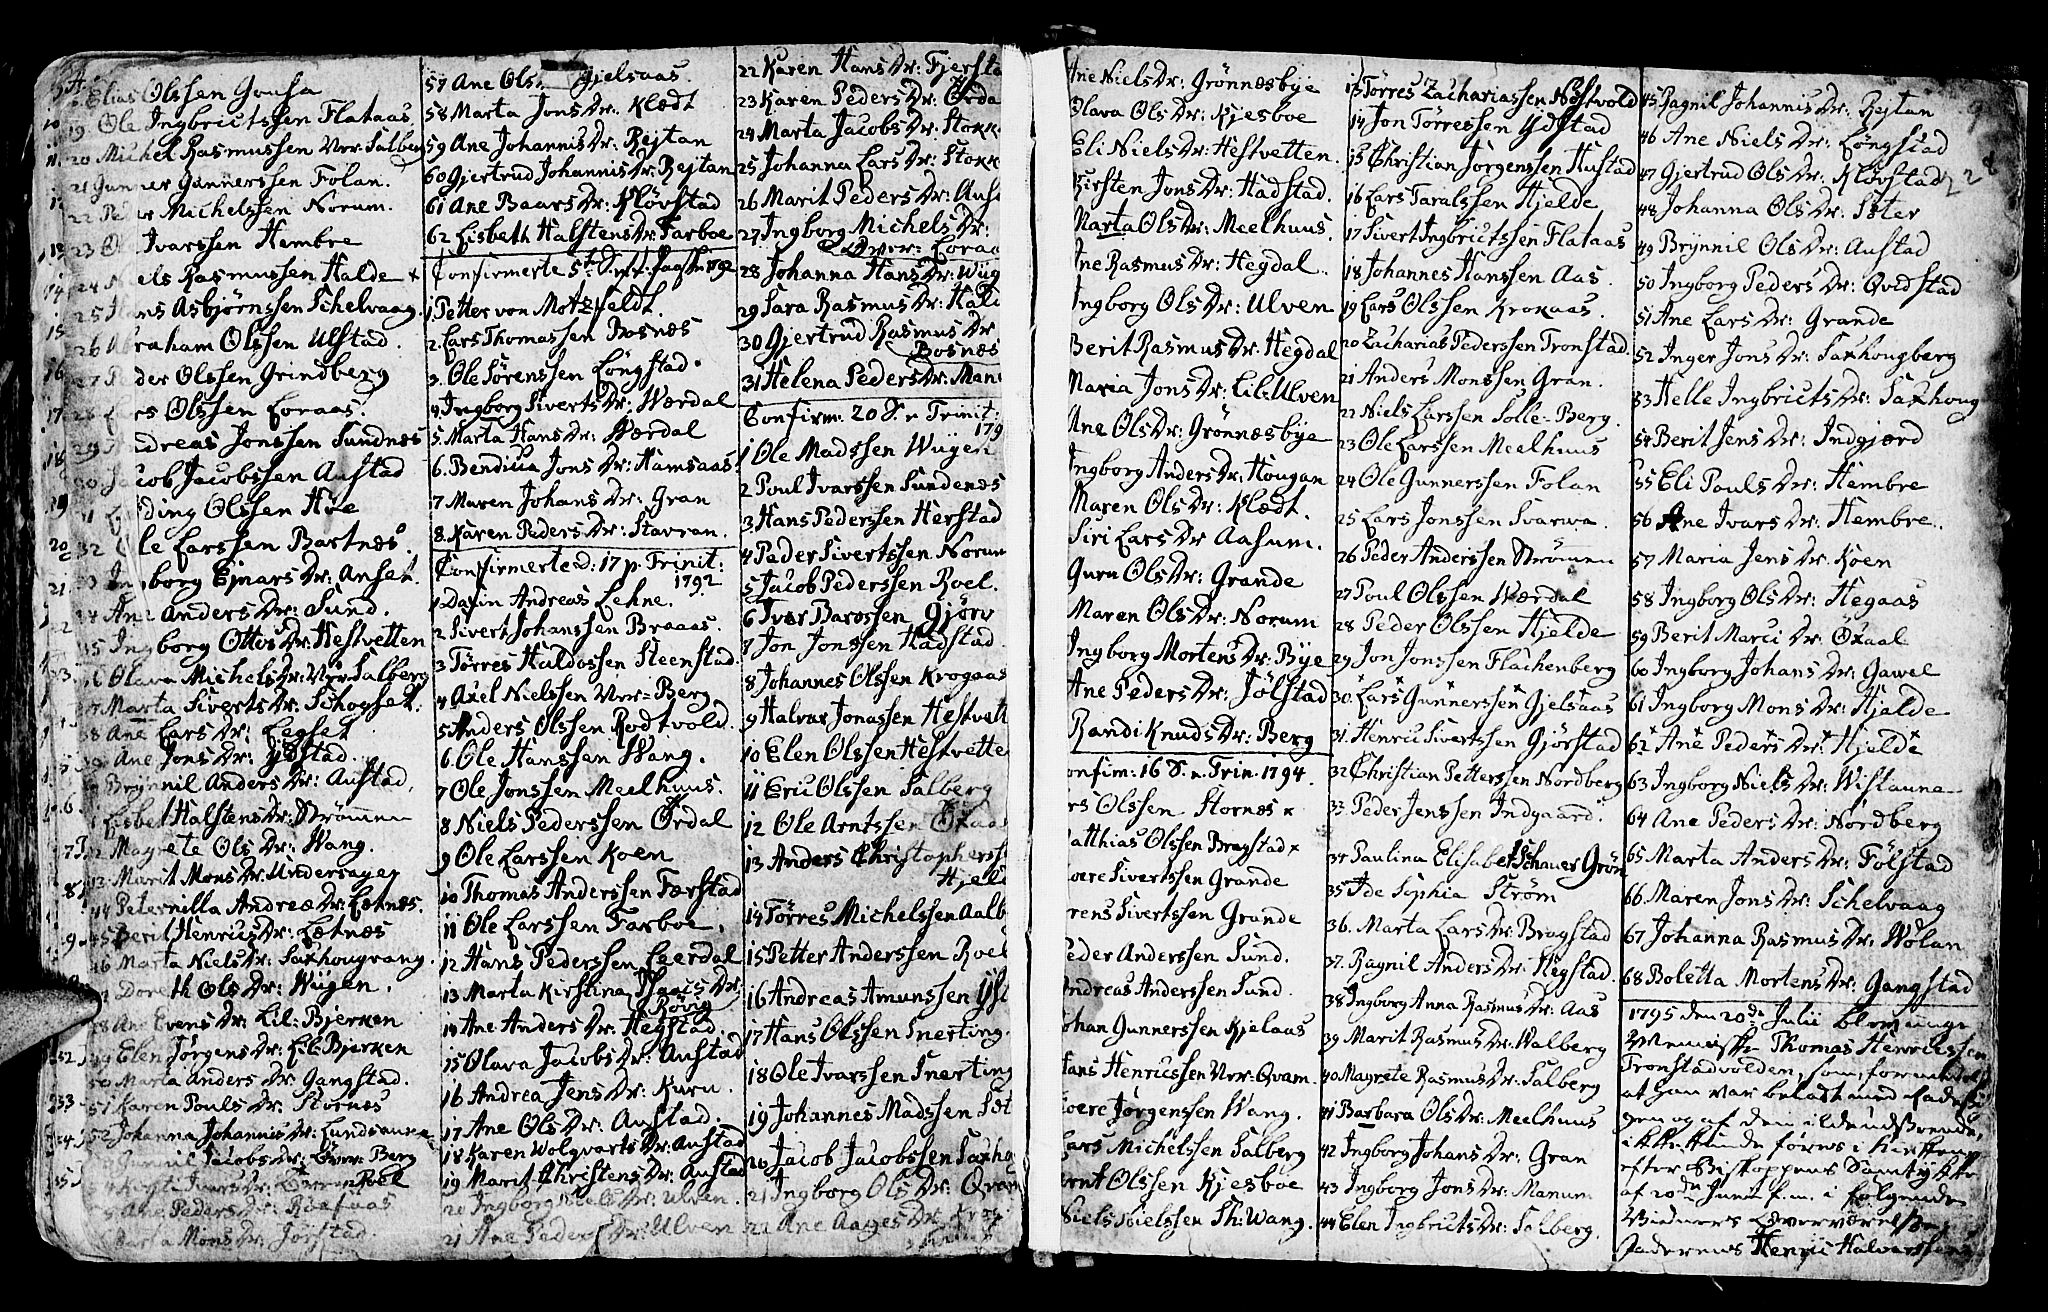 Elias Olssen Gousa
19 Ole Ingbrictssen Flataas
20 Michel Rasmussen Vver: Salberg
21 Gunner Gunnerssen Folan.
22 Peder Michelssen Norum.
23 Ivarssen Hembre
24 Niels Rasmussen Halde
25 Hans Asbjørnssen Schelvaag
26 Abraham Olssen Ulstad.
27 Peder Olssen Grindberg
28 Lars Olssen Loraas.
29 Andreas Jonssen Sundnæs
30 Jacob Jacobssen Austad
31 Olssen Høe
32 Larssen Bartnæs.
33 Ingborg Ejnars Dr: Anset.
34 Ane Anders Dr: Sund.
35 Ingborg Ottes Dr: Hestvetten
36 Olava Michels Dr: Vver Salberg
37 Marta Siverts Dr: Schogset.
38 Ane Lars Dr: Legset
39 Ane Jons Dr: Ydstad.
Brynnil Anders Dr: Austad,
Lisbet Halstens Dr: Strømmen
42 Magrete Ols Dr: Wang.
43 Marit Mons Dr: Undersager
44 Peternilla Andreæ Dr: Letnæs.
45 Berit Henrics Dr: Letnæs
46 Marta Niels Dr: Saxhougvang.
47 Doreth Ols Dr: Wügen.
48 Ane Evens Dr: Lil: Bjerken
49 Elen Jørgens Dr: Lil: Bjerken
50 Marta Anders Dr: Gangstad.
51 Karen Pouls Dr: Stornæs
52 Johanna Johannis Dr: Lundsaunet
Jacobs Dr: Over: Berg
Ivars Dr: Roel
Ane Peders Dr: Roafaas
Marta Mons Dr: Jørstad.
57 Ane Ols Gjelsaas
58 Marta Jons Dr: Klædt
59 Ane Johannis Dr: Rejtan
60 Gjertrud Johannis Dr: Rejtan
61 Ane Baars Dr: Kløvstad
62 Lisbeth Halstens Dr: Farboe
Confirmerte 5te S. 1792
1 Petter von Motzfeldt.
2 Lars Thomassen Bosnæs
3. Ole Sørenssen Løngstad.
4 Ingborg Siverts Dr: Wærdal
5. Marta Hans Dr: Wærdal
6. Bendicia Jons Dr: Hamsaas
7 Maren Johans Dr: Gran
8. Karen Peders Dr: Stavran.
Confirmerte d: 17 p. Trinit: 1792
1 Dasin Andreas Lehne.
2 Sivert Johanssen Braaas.
3 Tørres Haldossen Steenstad.
4 Axel Nielssen Vver Berg
5 Anders Olssen Rødtvold.
6. Ole Hanssen Wang.
7 Ole Jonssen Meelhuus.
8 Niels Pederssen Ørdal
9 Ole Larssen Koen
10 Thomas Anderssen Færstad
11 Ole Larssen Farboe.
12 Hans Pederssen Leerdal
13 Marta Kirstina Thomis Dr: Røng
14 Ane Anders Dr: Hegstad.
15 Olava Jacobs Dr: Austad
16 Andrea Jens Dr: Kurn.
17 Ane Ols Dr: Austad.
18 Karen Wolqvarts Dr: Austad
19 Marit Christens Dr: Austad
20 Ingborg Niels Dr: Ulven.
21 Ane Peders Dr: Ulven
22 Karen Hans Dr: Fjersta
23 Karen Peders Dr: Ørda
24 Marta Jacobs Dr: Stokk
25 Johanna Lars Dr: Stokk
26 Marit Peders Dr: Aus
27 Ingborg Michels Dr: Over: Loraa
28 Johanna Hans Dr: Wüg
29 Sara Rasmus Dr: Hald
30 Gjertrud Rasmus Dr Bosnæs
31 Helena Peders Dr: Man
Confirm: 20 S. n Trinit: 179
1 Ole Madssen Wügen
2 Poul Ivarssen Sundenæs
3 Hans Pederssen Herstad
4 Peder Sivertssen Norum
5 Jacob Pederssen Roel.
6 Ivar Barossen Gjørv
7 Jon Jonssen Hadstad.
8 Johannes Olssen Krogaas
9 Halvar Jonassen Hestvett
10 Elen Olssen Hestvette
11 Eric Olssen Salberg
12 Ole Arntssen Oxaas
13 Anders Christopherss Hjeld
14 Tørres Michelssen Aalb
15 Petter Anderssen Roel
16 Andreas Amunssen Yst
17 Hans Olssen Inerting.
18 Ole Ivarssen Inerting
19 Johannes Madssen Søt
20 Jacob Jacobssen Saxho
21 Ingborg Ols Dr: Qvam
22 Ane Aages Dr:
Ane Niels Dr: Grønnæsbye
Olava Ols Dr: Kjesboe
Eli Niels Dr: Hestvetten.
Kirsten Jons Dr: Hadstad.
Marta Ols Dr: Meelhuus.
Ane Rasmus Dr: Hegdal.
Ingborg Ols Dr: Ulven
Berit Rasmus Dr: Hegdal
Maria Jons Dr: Lil: Ulven
Ane Ols Dr: Grønnæsbye
Ingborg Anders Dr: Hougan
Maren Ols Dr: Klædt.
Siri Lars Dr Aasum.
Guru Ols Dr: Grande
Maren Ols Dr: Norum
Ingborg Mortens Dr: Bye
Ane Peders Dr: Jølstad
Randi Knuds Dr: Berg
onfim: 16 S. n. Trin. 1794.
rs Olssen Stornæs
atthias Olssen Bragstad
oere Sivertssen Grande
rens Sivertssen Grande
eder Anderssen Sund.
ndreas Anderssen Sund.
ohan Gunnerssen Kjelaas
Hans Henricssen Vver: Qvam.
oere Jørgenssen Wang.
Lars Michelssen Salberg
ernt Olssen Kjesboe
Niels Nielssen Th: Wang.
13 Tørres Zachariassen Nøstvold
14 Jon Tørressen Ydstad
15 Christian Jørgenssen Hustad
16 Lars Taralssen Hjelde
17 Sivert Ingbrictssen Flataas
18 Johannes Hanssen Aas.
19 Lars Olssen Krokaas.
20 Zacharias Pederssen Tronstad.
21 Anders Monssen Gran.
22 Niels Larssen Solle-Berg.
23 Ole Larssen Meelhuus
24 Ole Gunnerssen Folan
25 Lars Jonssen Svarwa.
26 Peder Anderssen Strømmen
27 Poul Olssen Wærdal
28 Peder Olssen Hjelde
29 Jon Jonssen Flachenberg
30. Lars Gunnerssen Gjelsaas
31. Henric Sivertssen Gjørstad
32 Christian Petterssen Nordberg
33 Peder Jenssen Indgaard.
34 Paulina Elisabet Schauer Grön
35 Ide Sophia Strøm
36. Marta Lars Dr: Bragstad
37. Ragnil Anders Dr: Hegstad.
38 Ingborg Anna Rasmus Dr: Aas
39 Marit Rasmus Dr: Walberg
40 Magrete Rasmus Dr: Salberg
41 Barbara Ols Dr: Meelhuus
42 Ingborg Johans Dr: Gran
43 Ingborg Jons Dr: Manum
44 Elen Ingbricts Dr: Salberg.
228
45 Ragnil Johannis Dr: Rejtan
46 Ane Niels Dr: Løngstad
47 Gjertrud Ols Dr: Kløvstad
48 Johanna Ols Dr: Søter
49 Brynnil Ols Dr: Austad
50 Ingborg Peders Dr: Qvidstad
51 Ane Lars Dr: Grande
52 Inger Jons Dr: Saxhougberg
53 Helle Ingbricts Dr: Saxhoug
54 Berit Jens Dr: Indgjærd
55 Eli Pouls Dr: Hembre
56 Ane Ivars Dr: Hembre.
57 Maria Jens Dr: Koen
58 Ingborg Ols Dr: Hegaas
59 Berit Marci Dr: Oxaal
60 Ingborg Johans Dr: Gawel
61 Ingborg Mons Dr: Hjelde
62 Ane Peders Dr: Hjelde
63 Ingborg Niels Dr: Wistaune
64 Ane Peders Dr: Nordberg
65 Marta Anders Dr: Følstad
66 Maren Jons Dr: Schelvaag
67 Johanna Rasmus Dr: Wølan
68 Boletta Mortens Dr: Gangstad
1795 den 20de Julii blev unge
Menniske Thomas Henricssen
Tronstadvolden, som, formedelst
at han var beladt med
gen og af den
ikke kunde føres i Kirken
efter Biskoppens Samtykke
af 20de Junii f. m. i følgende
Vidners Overværelse,
Faderens Henric Halvorssen